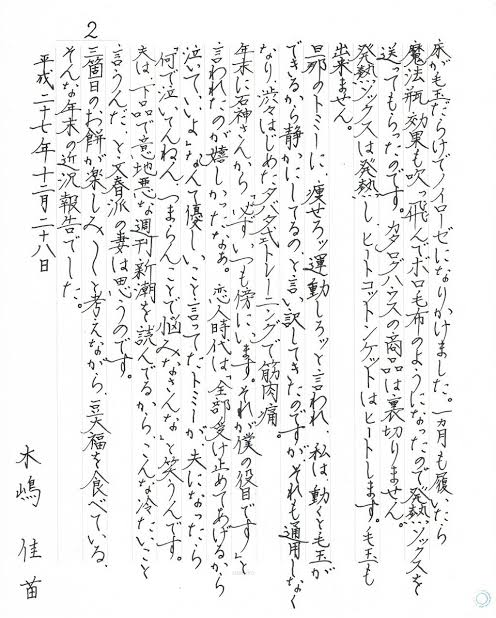 2
床が毛玉だらけでノイローゼになりかけました。一カ月も履いたら
魔法瓶効果も吹っ飛んでボロ毛布のようになったので発熱ソックスを
送ってもらったのです。カタログハウスの商品は裏切りません。
発熱ソックスは発熱しヒートコットンケットはヒートします。毛玉も
出来ません。
旦那のトミーに、痩せろッ運動しろッと言われ、私は動くと毛玉が
できるから静かにしてるのと言い訳してきたのですがそれも通用しなく
なり、渋々はじめたタバタ式トレーニングで筋肉痛。
年末に石神さんから「いついつも傍にいます。それが僕の役目です」と
言われたのが嬉しかったなあ。恋人時代は「全部受け止めてあげるから
泣いていいよ」なんて優しいこと言ってたトミーが夫になったら
「何で泣いてんねん、つまらんことで悩みなさんな」と笑うんです。
夫は下品で意地悪な週刊新潮を読んでるからこんな冷たいこと
言うんだ、と文春派の妻は思うのです。
三箇日のお餅が楽しみ〳〵と考えながら、豆大福を食べている、
そんな年末の近況報告でした。
平成二十七年十二月二十八日
木嶋佳苗